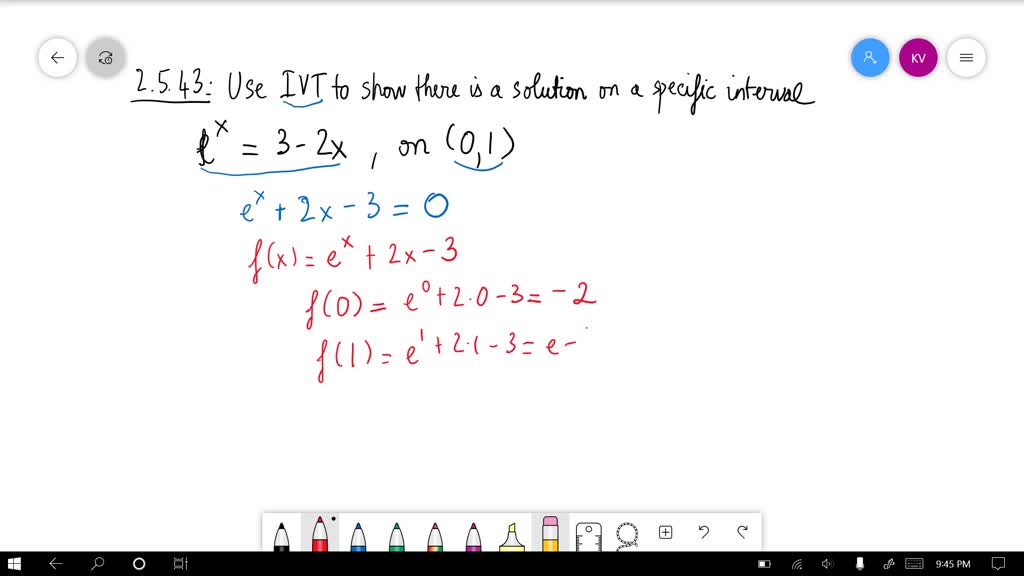 KV
2.5.43: Use IVT to show there is a solution on a specific interval
e^x = 3-2x, on (0,1)
e^x + 2x - 3 = 0
f(x) = e^x + 2x - 3
f(0) = e^0 + 2·0 - 3 = -2
f(1) = e^1 + 2·1 - 3 = e -
9:45 PM